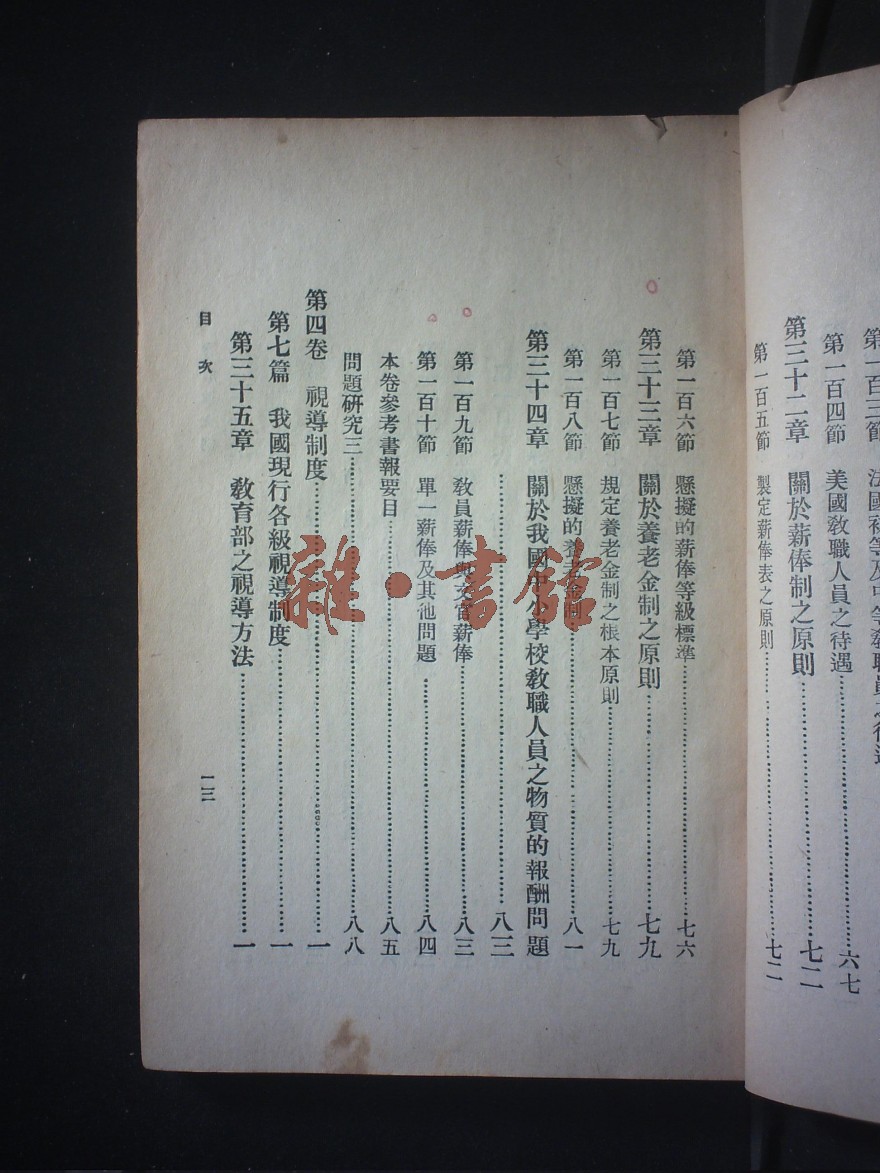 第一百三節
第一百四節　美國教職人員之待遇……六七
第三十二章　關於薪俸制之原則……七二
第一百五節　製定薪俸表之原則……七二
第一百六節　懸擬的薪俸等級標準……七六
第三十三章　關於養老金制之原則……七九
第一百七節　規定養老金制之根本原則……七九
第一百八節　懸擬的養老金制……八一
第三十四章　關於我國中小學校教職人員之物質的報酬問題
……八三
第一百九節　教員薪俸與文官薪俸……八三
第一百十節　單一薪俸及其他問題……八四
本卷參考書報要目……八五
問題研究三……八八
第四卷　視導制度……一
第七篇　我國現行各級視導制度……一
第三十五章　教育部之視導方法……一
目次
一三
雜·書館